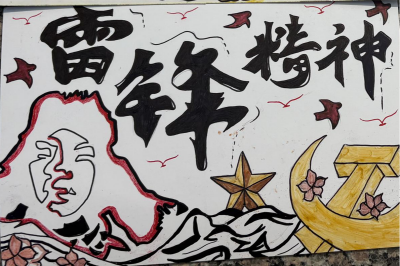 雷锋精神